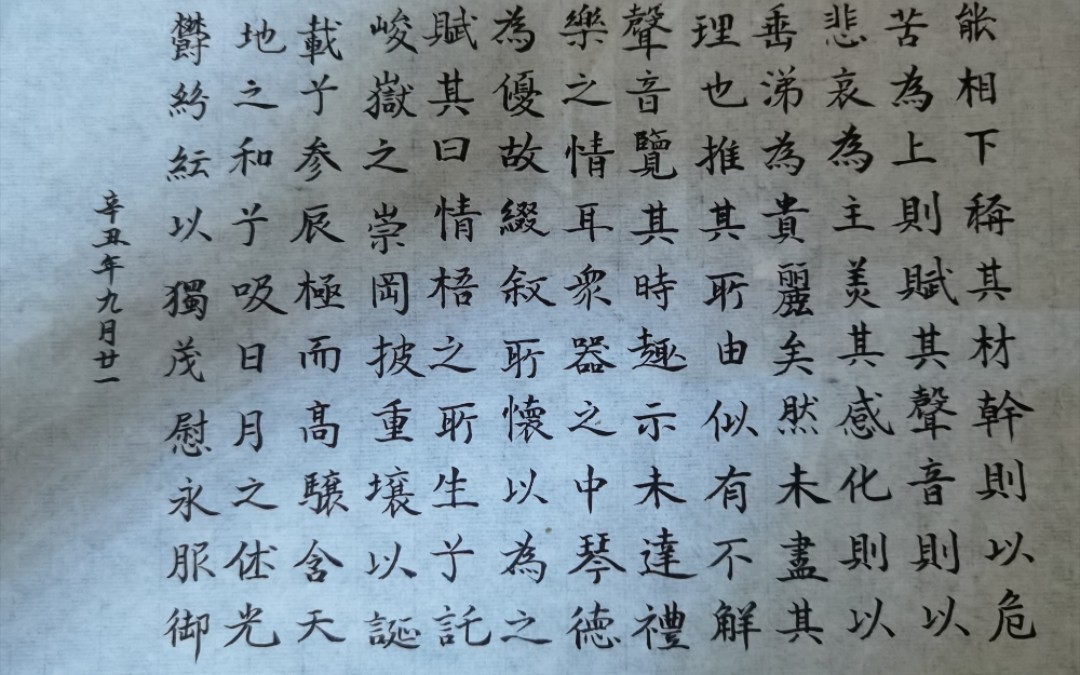 能相下稱其材幹則以危
苦為上則賦其聲音則以
悲哀為主美其感化則以
垂涕為貴麗矣然未盡其
理也推其所由似有不解
聲音覽其時趣示未達禮
樂之情耳衆器之中琴德
為優故綴叙所懷以為之
賦其曰情梧之所生于託
峻嶽之崇岡披重壤以誕
載于参辰極而高驤含天
地之和于吸日月之休光
欝紛紜以獨茂慰永服御
辛丑年九月廿一